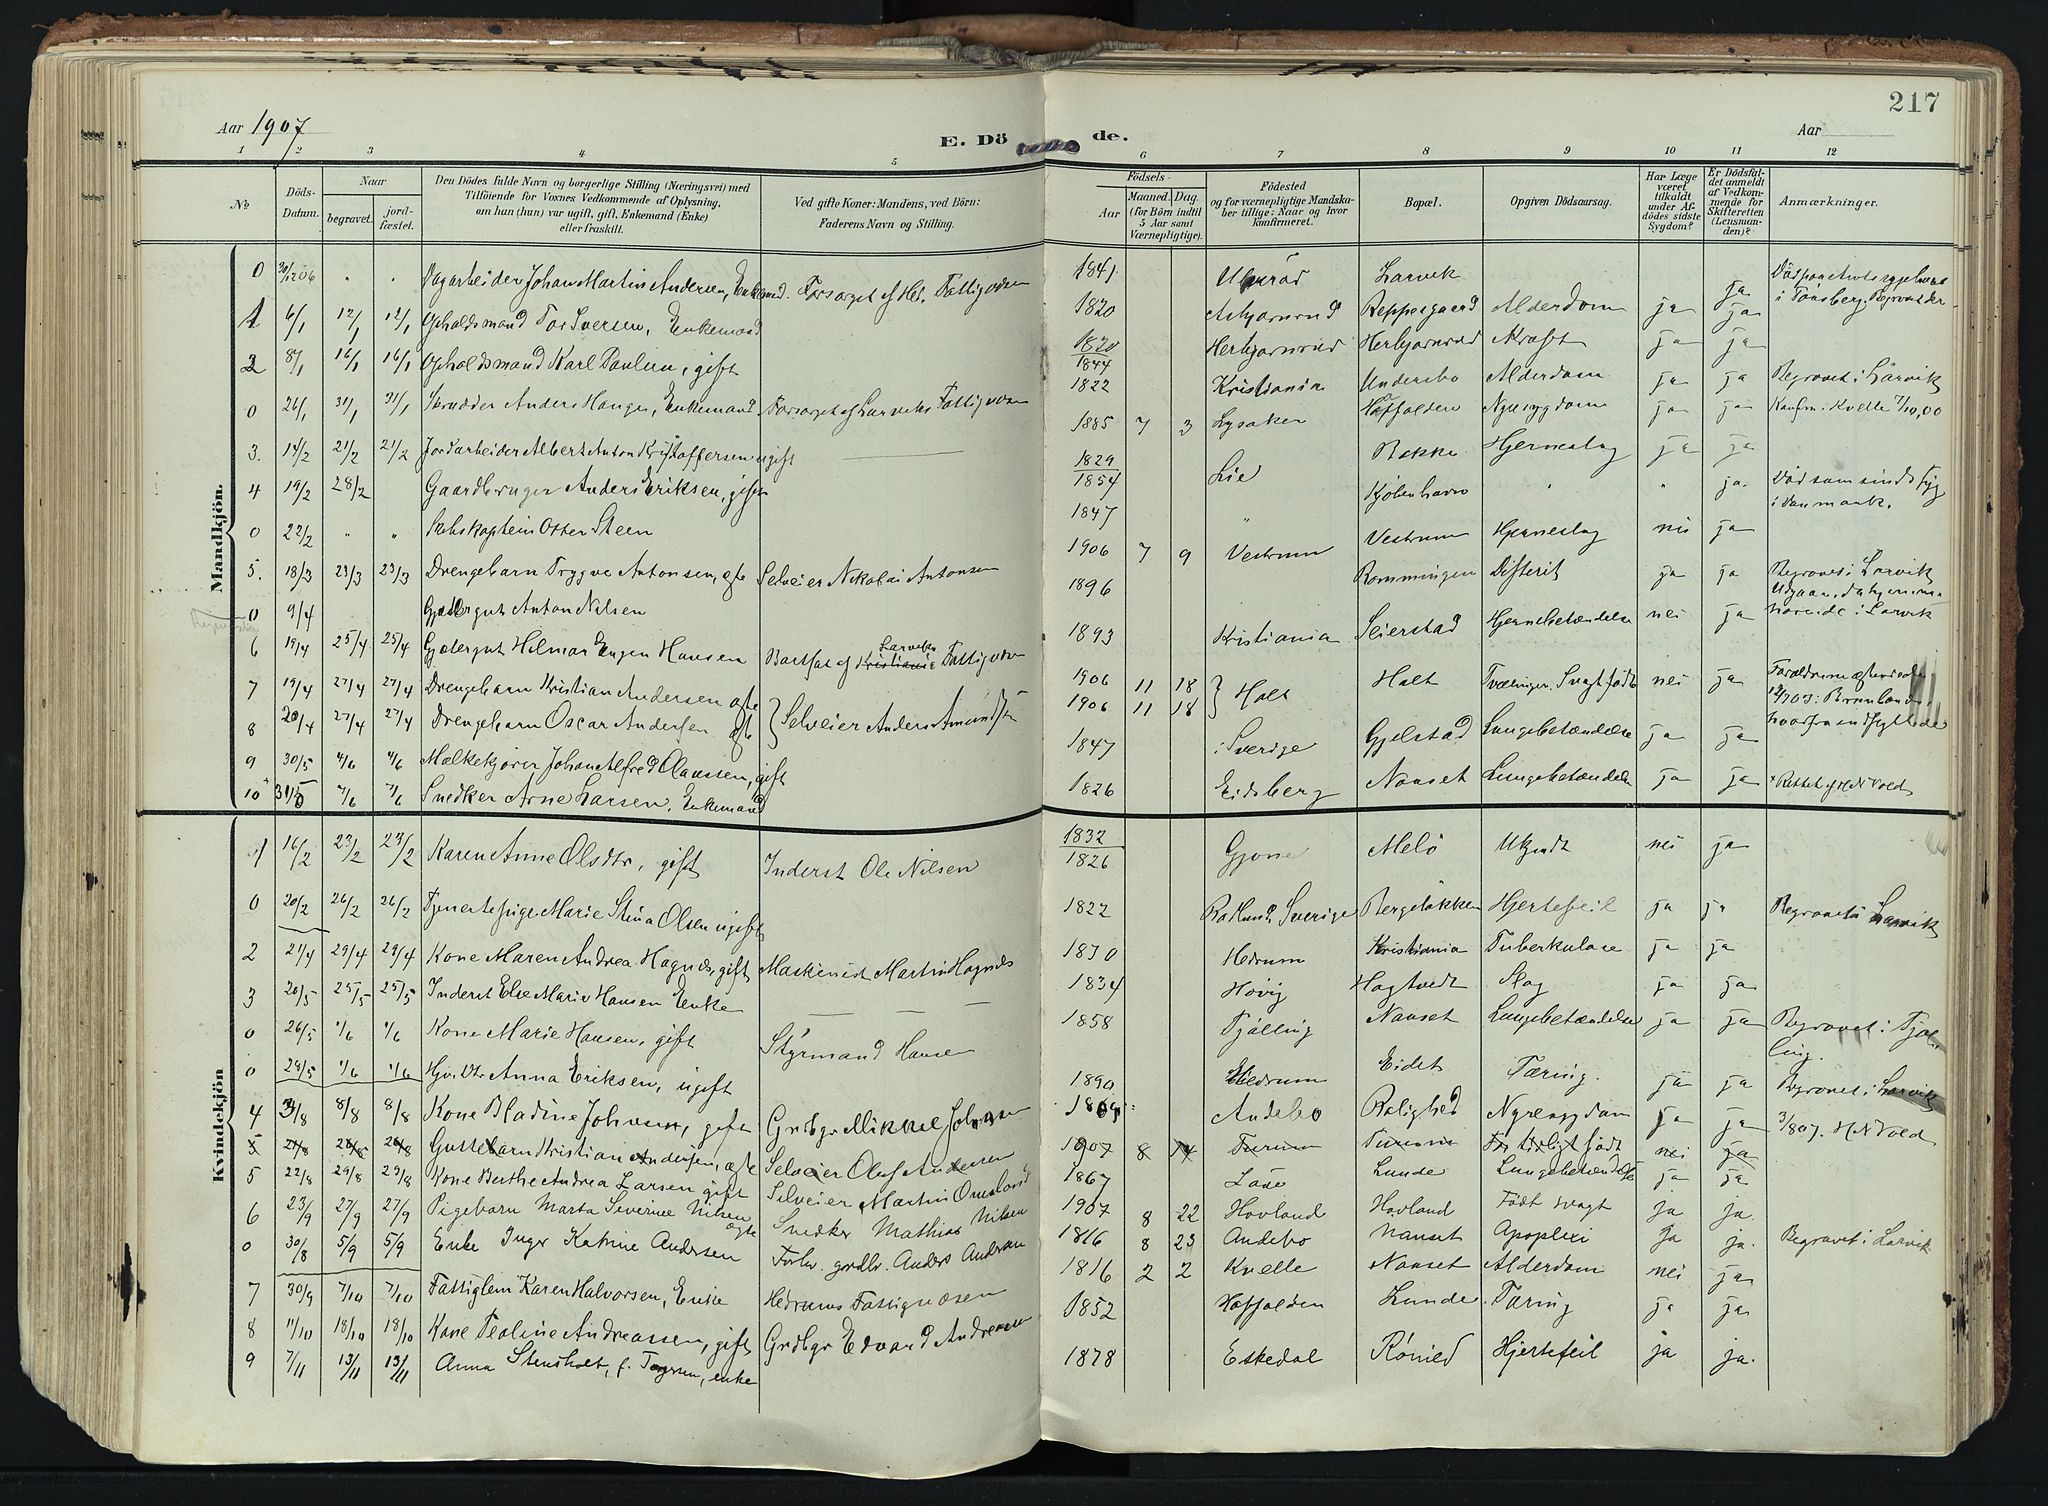 217
Aar 1907
E. Dö de.
Aar
1 2 3 4 5 6 7 8 9 10 11 12
No.
Döds-Datum.
Naar
begravet.
jord-fæstet.
Den Dödes fulde Navn og borgerlige Stilling (Næringsvei) med
Tilföiende for Voxnes Vedkommende af Oplysning,
om han (hun) var ugift, gift, Enkemand (Enke)
eller fraskilt.
Ved gifte Koner: Mandens, ved Börn:
Faderens Navn og Stilling.
Födsels-
Aar
Maaned. Dag.
(for Börn indtil
5 Aar samt
Værnepligtige).
Födested
og for værnepligtige Mandska-
ber tillige: Naar og hvor
konfirmeret.
Bopæl.
Opgiven Dödsaarsag.
Har Læge
været
tilkaldt
under Af-
dödes sidste
Sygdom?
Er Dödsfal-
det anmeldt
af Vedkom-
mende for
Skifteretten
(Lensman-
den)?
Anmærkninger.
Mandkjön.
0 30/12 06 " " Dagarbeider Johan Martin Andersen, Enkemd. Forsørget af Hd. Fattigvæsen 1841 Larvik ja
1 6/1 12/1 12/1 Opholdsmand Tor Iversen, Enkemand 1820 Asbjørnrød Reppesgaard Alderdom ja ja i Tønsberg. Begravet der
2 8/1 16/1 16/1 Opholdsmand Karl Paulsen, gift 1820 Herbjørnrød Herbjørnrød Kræft ja ja
0 26/1 31/1 31/1 Skrædder Anders Hauger, Enkemand Forsørget af Larviks Fattigvæsen 1844 1822 Kristiania Undersbo Alderdom ja ja Begravet i Larvik
3. 14/2 21/2 21/2 Jordarbeider Albert Anton Kristoffersen ugift 1885 7 3 Lysaker Hafalden Nyresygdom ja ja Konfm. i Kvelle 7/10,00
4 19/2 28/2 Gaardbruger Anders Eriksen, gift 1829 1854 Lie Bakke Hjerneslag ja ja
0 22/2 " " Skibskaptein Otter Steen 1847 " Kjøbenhavn " " ja. Død som sindssyg i Danmark.
5. 18/3 23/3 23/3 Drengebarn Trygve Antonsen, ægte Selveier Nikolai Antonsen 1906 7 9 Vestrum Vestrum Hjerneslag nei ja
0 9/4 Gjætergut Anton Nilsen 1896 Rømmingen Difterit ja ja Begravet i Larvik
6 19/4 25/4 25/4 Gjætergut Hilmar Eugen Hansen Bortsat af Kristiania Larviks Fattigvæsen 1893 Kristiania Seierstad Hjernebetændelse nei ja
7 19/4 27/4 27/4 Drengebarn Kristian Andersen ægte 1906 11 18 Holt Holt Tvillinger. Svagt født nei ja
8 20/4 27/4 27/4 Drengebarn Oscar Andersen ægte Selveier Anders Amundsen 1906 11 18
9 30/5 4/6 4/6 Melkekjører Johan Alfred Olaussen, gift 1847 i Sverige Gjelstad Lungebetændelse ja ja
10 31/5 7/6 7/6 Snedker Arne Larsen, Enkemand 1826 Eidsberg Nanset Lungebetændelse ja ja Rettet af H.N. Vold
Kvindekjön
1 16/2 23/2 23/2 Karen Anne Olsdtr, gift Inderst Ole Nilsen 1832 1826 Gjone Melø Ukjendt nei ja
0 20/2 26/2 26/2 Tjenestepige Marie Stina Olsen ugift 1822 Sverige Bergeløkken Hjertefeil ja ja Begravet i Larvik
2 21/4 29/4 29/4 Kone Maren Andrea Hagnæs, gift Maskinist Martin Hagnæs 1870 Hedrum Kristiania Tuberkulose ja ja
3 20/5 25/5 25/5 Inderst Else Marie Hansen Enke 1834 Hovig Hagtvedt Slag ja ja
0 26/5 1/6 1/6 Kone Marie Hansen, gift Styrmand Hansen 1858 Tjølling Nanset Lungebetændelse ja ja Begravet i Tjølling.
0 29/5 1/6 1/6 Hjv. Dtr Anna Eriksen, ugift 1890 Hedrum Eidet Tæring. ja ja Begravet i Larvik
4 3/8 8/8 8/8 Kone Bladine Johnsen, gift Grdbgr Mikkel Johnsen Andebo Bolighed Nyresygdom ja ja 3/8 07. H N Vold
5 21/8 26/8 26/8 Guttebarn Kristian Andersen, ægte Selveier Oluf Andersen 1907 8 14 Furum Furum For tidligt født nei ja
5 22/8 29/8 29/8 Kone Berthe Andrea Larsen gift Selveier Martin 1867 Løve Lunde Lungebetændelse ja ja
6 23/9 27/9 27/9 Pigebarn Marta Severine Nilsen ægte Snedker Mathias Nilsen 1907 8 22 Hovland Hovland Født svagt ja ja.
0 30/8 5/9 5/9 Enke Inger Katrine Andersen Forhv. grdbr. Anders Andersen 1816 8 23 Andebo Nanset Apoplexi Ja ja. Begravet i Larvik
7 30/9 7/10 7/10 Fattiglem Karen Halvorsen, Enke Hedrums Fattigvæsen 1816 2 2 Kvelle Nanset Alderdom nei ja
8 11/10 18/10 18/10 Kone Teoline Andreassen, gift Grdbgr Edvard Andreassen 1852 Lunde Tæring ja ja.
9 7/11 13/11 13/11 Anna Stensholt, enke 1878 Eskedal Hjertefeil ja ja.